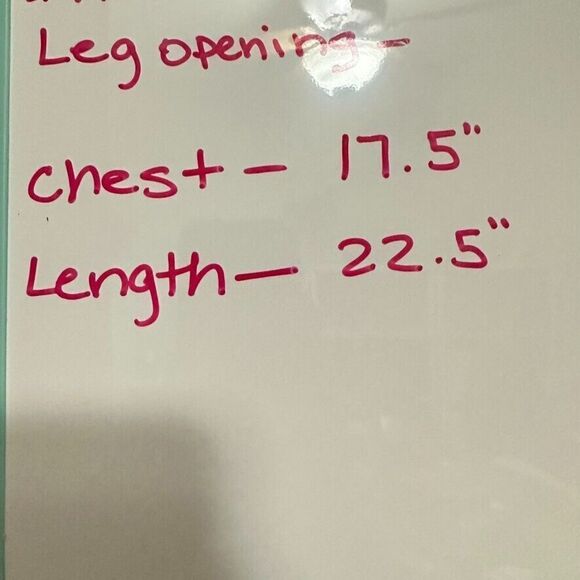 Leg opening -
chest - 17.5"
Length - 22.5"